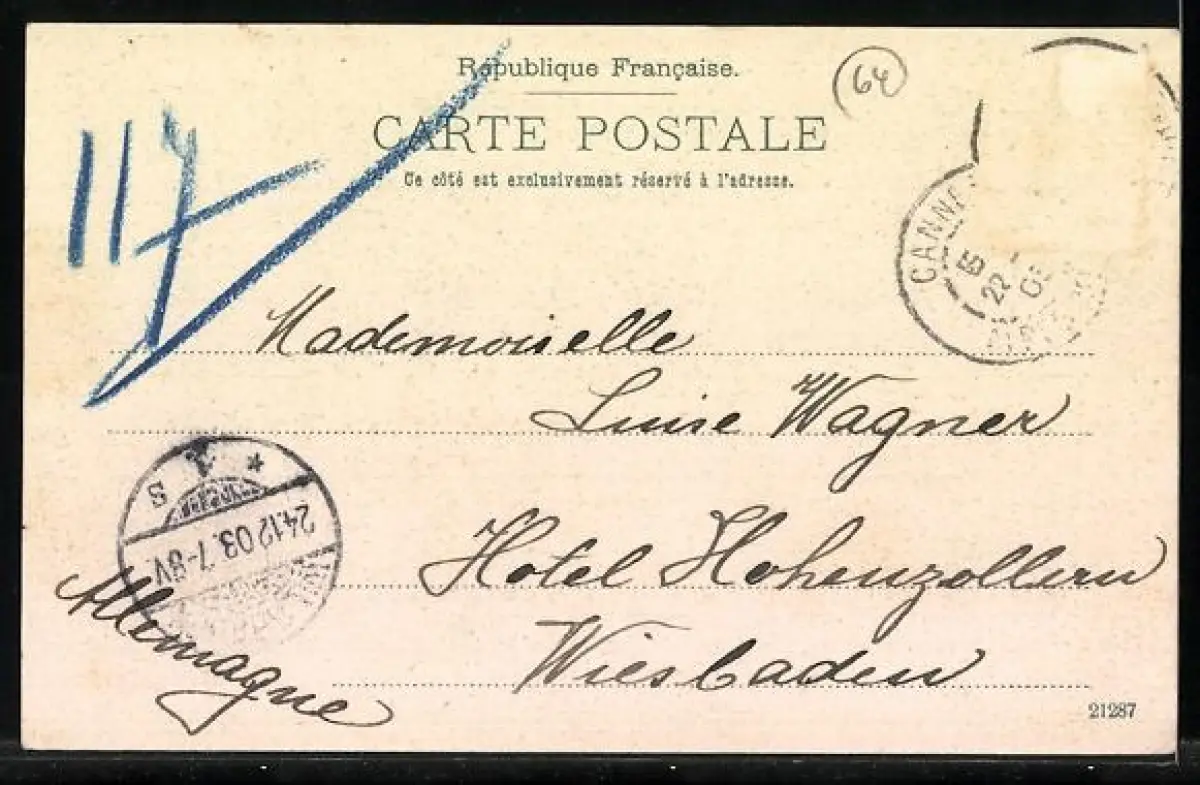 République Française.
CARTE POSTALE
Ce côté est exclusivement réservé à l'adresse.
64
117
CANNES
22
Mademoiselle
Luise Wagner
Hotel Hohenzollern
Wiesbaden
Allemagne
* A S
24.12 03. 7-8V.
21287